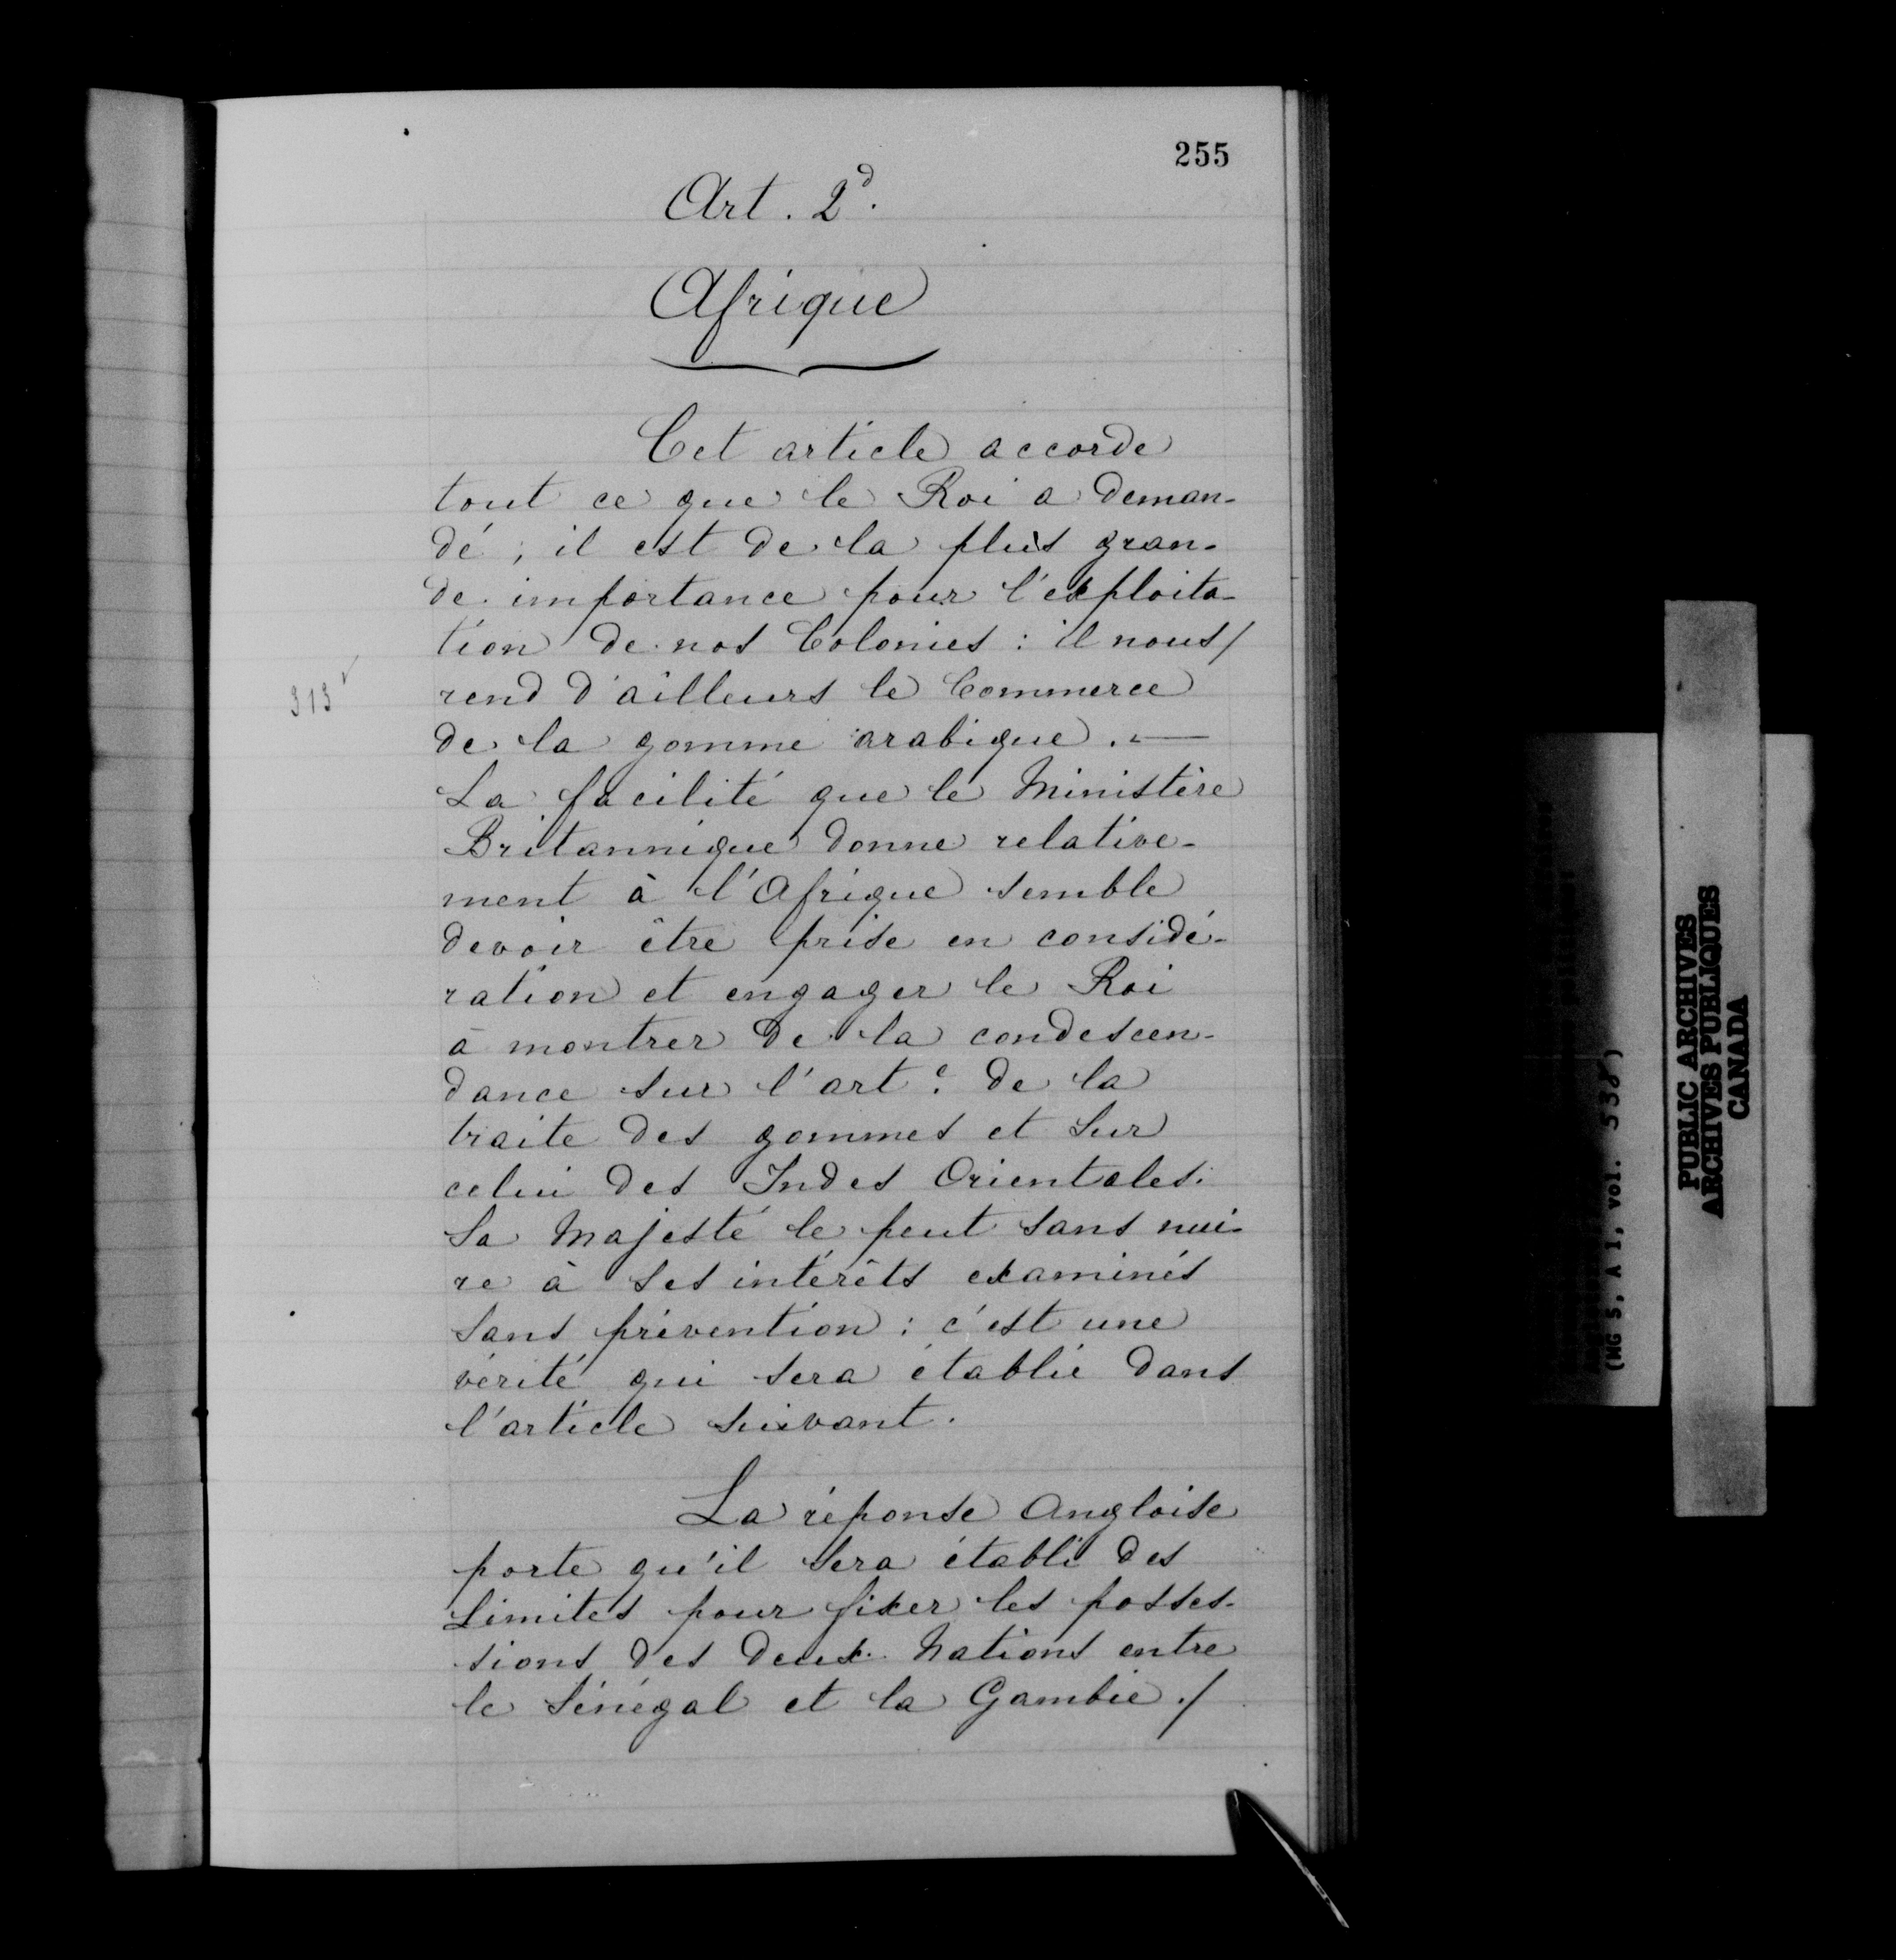 255
Art. 2d.
Afrique
Cet article accorde
tout ce que le Roi a deman-
dé ; il est de la plus gran-
de importance pour l'exploita-
tion de nos Colonies : il nous/
313 rend d'ailleurs le Commerce
de la gomme arabique. —
La facilité que le Ministère
Britannique donne relative-
ment à l'Afrique semble
devoir être prise en considé-
ration et engager le Roi
à montrer de la condescen-
dance sur l'art.e de la
traite des gommes et sur
celui des Indes Orientales.
Sa Majesté le peut sans nui-
re à ses intérêts examinés
sans prévention : c'est une
vérité qui sera établie dans
l'article suivant.
La réponse Angloise
porte qu'il sera établi des
Limites pour fixer les posses-
sions des deux Nations entre
le Sénégal et la Gambie ./
(MG 5, A 1, vol. 538)
PUBLIC ARCHIVES
ARCHIVES PUBLIQUES
CANADA